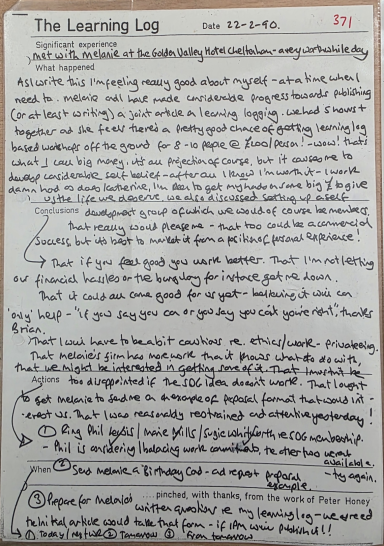 The Learning Log
Date 22-2-90.
371
Significant experience
met with melanie at the Golden Valley Hotel Cheltenham - a very worthwhile day
What happened
As I write this I'm feeling really good about myself - at a time when I
need to. melanie and I have made considerable progress towards publishing
(or at least writing) a joint article on learning logging. we had 5 hours t
together and she feels there's a pretty good chance of getting learning log
based workshops off the ground for 8-10 people @ £200/person! - wow! that's
what I call big money. it's all projection of course, but it causes me to
develop considerable self belief - after all I know I'm worth it - I work
damn hard as does Katherine, I'm keen to get my hands on some big £s to give
us the life we deserve. we also discussed setting up a self
Conclusions development group of which we would of course be members,
That really would please me - that too could be a commercial
success, but it's best to market it from a position of personal experience!
→ That if you feel good you work better. That I'm not letting
our financial hassles or the burglary for instance get me down.
That it could all come good for us yet - believing it will can
'only' help - "if you say you can or you say you can't you're right", thanks
Brian.
That I will have to be a bit cautious re. ethics/work - privateering.
That melanie's firm has more work than it knows what to do with,
that we might be interested in getting some of it. That I mustn't be
Actions too disappointed if the SDG idea doesn't work. That I ought
to get melanie to send me an example of proposal format that would int-
erest us. That I was reasonably restrained and attentive yesterday!
① Ring Phil / maire / sugie re SDG membership.
- Phil is considering/balancing work commitments, the other two weren't
available.
- try again.
When ② Send melanie a Birthday Card - and request proposal
example.
③ Prepare for melanie .... pinched, with thanks, from the work of Peter Honey
written questions re my learning log - we agreed
the initial article would take that form - if IPM will publish it!!
① Today / next week ② Tomorrow ③ From tomorrow